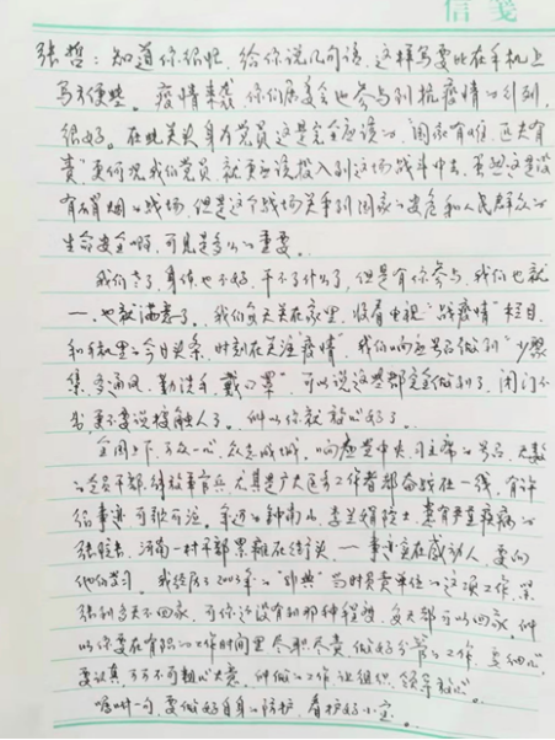 信笺
张哲：知道你很忙，给你说几句话，这样写要比在手机上
写方便些。疫情来袭，你们居委会也参与到抗疫情的行列，
很好。在此关头身为党员这是完全应该的，国家有难，匹夫有
责，更何况我们党员，就更应该投入到这场战斗中去，虽然这是没
有硝烟的战场，但是这个战场关乎到国家的安危和人民群众的
生命安全啊，可见是多么的重要。
我们老了，身体也不好，干不了什么了，但是有你参与，我们也就
一，也就满意了。我们每天关在家里，收看电视"战疫情"栏目，
和手机里的今日头条，时刻在关注"疫情"，我们响应号召做到"少聚
集，多通风，勤洗手，戴口罩"，可以说这些都完全做到了，闭门不
出，更不要说接触人了。所以你就放心好了。
全国上下，万众一心，众志成城，响应党中央、习主席的号召，大家
的党员干部，解放军官兵，尤其是广大医务工作者都奋战在一线，有许
多事迹可歌可泣。年迈的钟南山，李兰娟院士，患有严重疾病的
张院长，河南一村干部累瘫在街头，一事迹实在感动人，要向
他们学习。我经历了2003年的"非典"当时负责单位的这项工作，紧
张到多天不回家，可你还没有到那种程度，每天都可以回家，所
以你要在有限的工作时间里，尽职尽责，做好分管的工作，要细心，
要认真，万万不可粗心大意，所做的工作让组织、领导放心。
嘱咐一句，要做好自身的防护，看护好小宝。